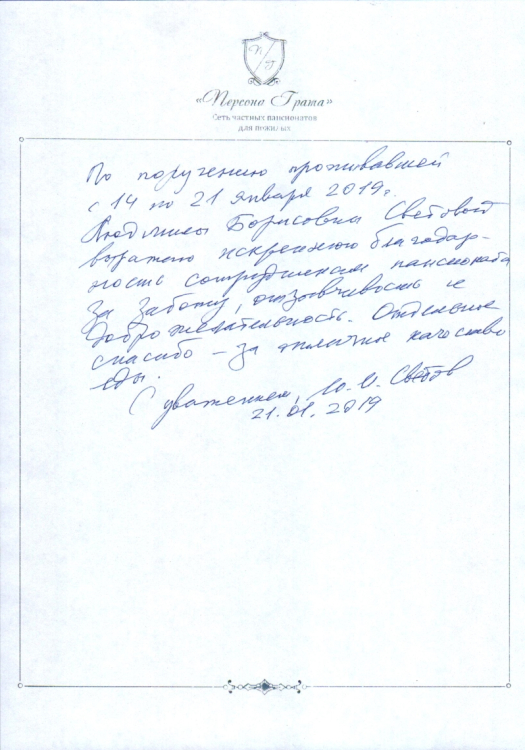 П Г
«Персона Грата»
Сеть частных пансионатов
для пожилых
По поручению проживавшей
с 14 по 21 января 2019г.
Людмилы Борисовны Световой
выражаю искреннюю благодар-
ность сотрудникам пансионата
за заботу, отзывчивость и
доброжелательность. Отдельное
спасибо – за отличное качество
еды.
С уважением, Ю. И. Светов
21.01.2019